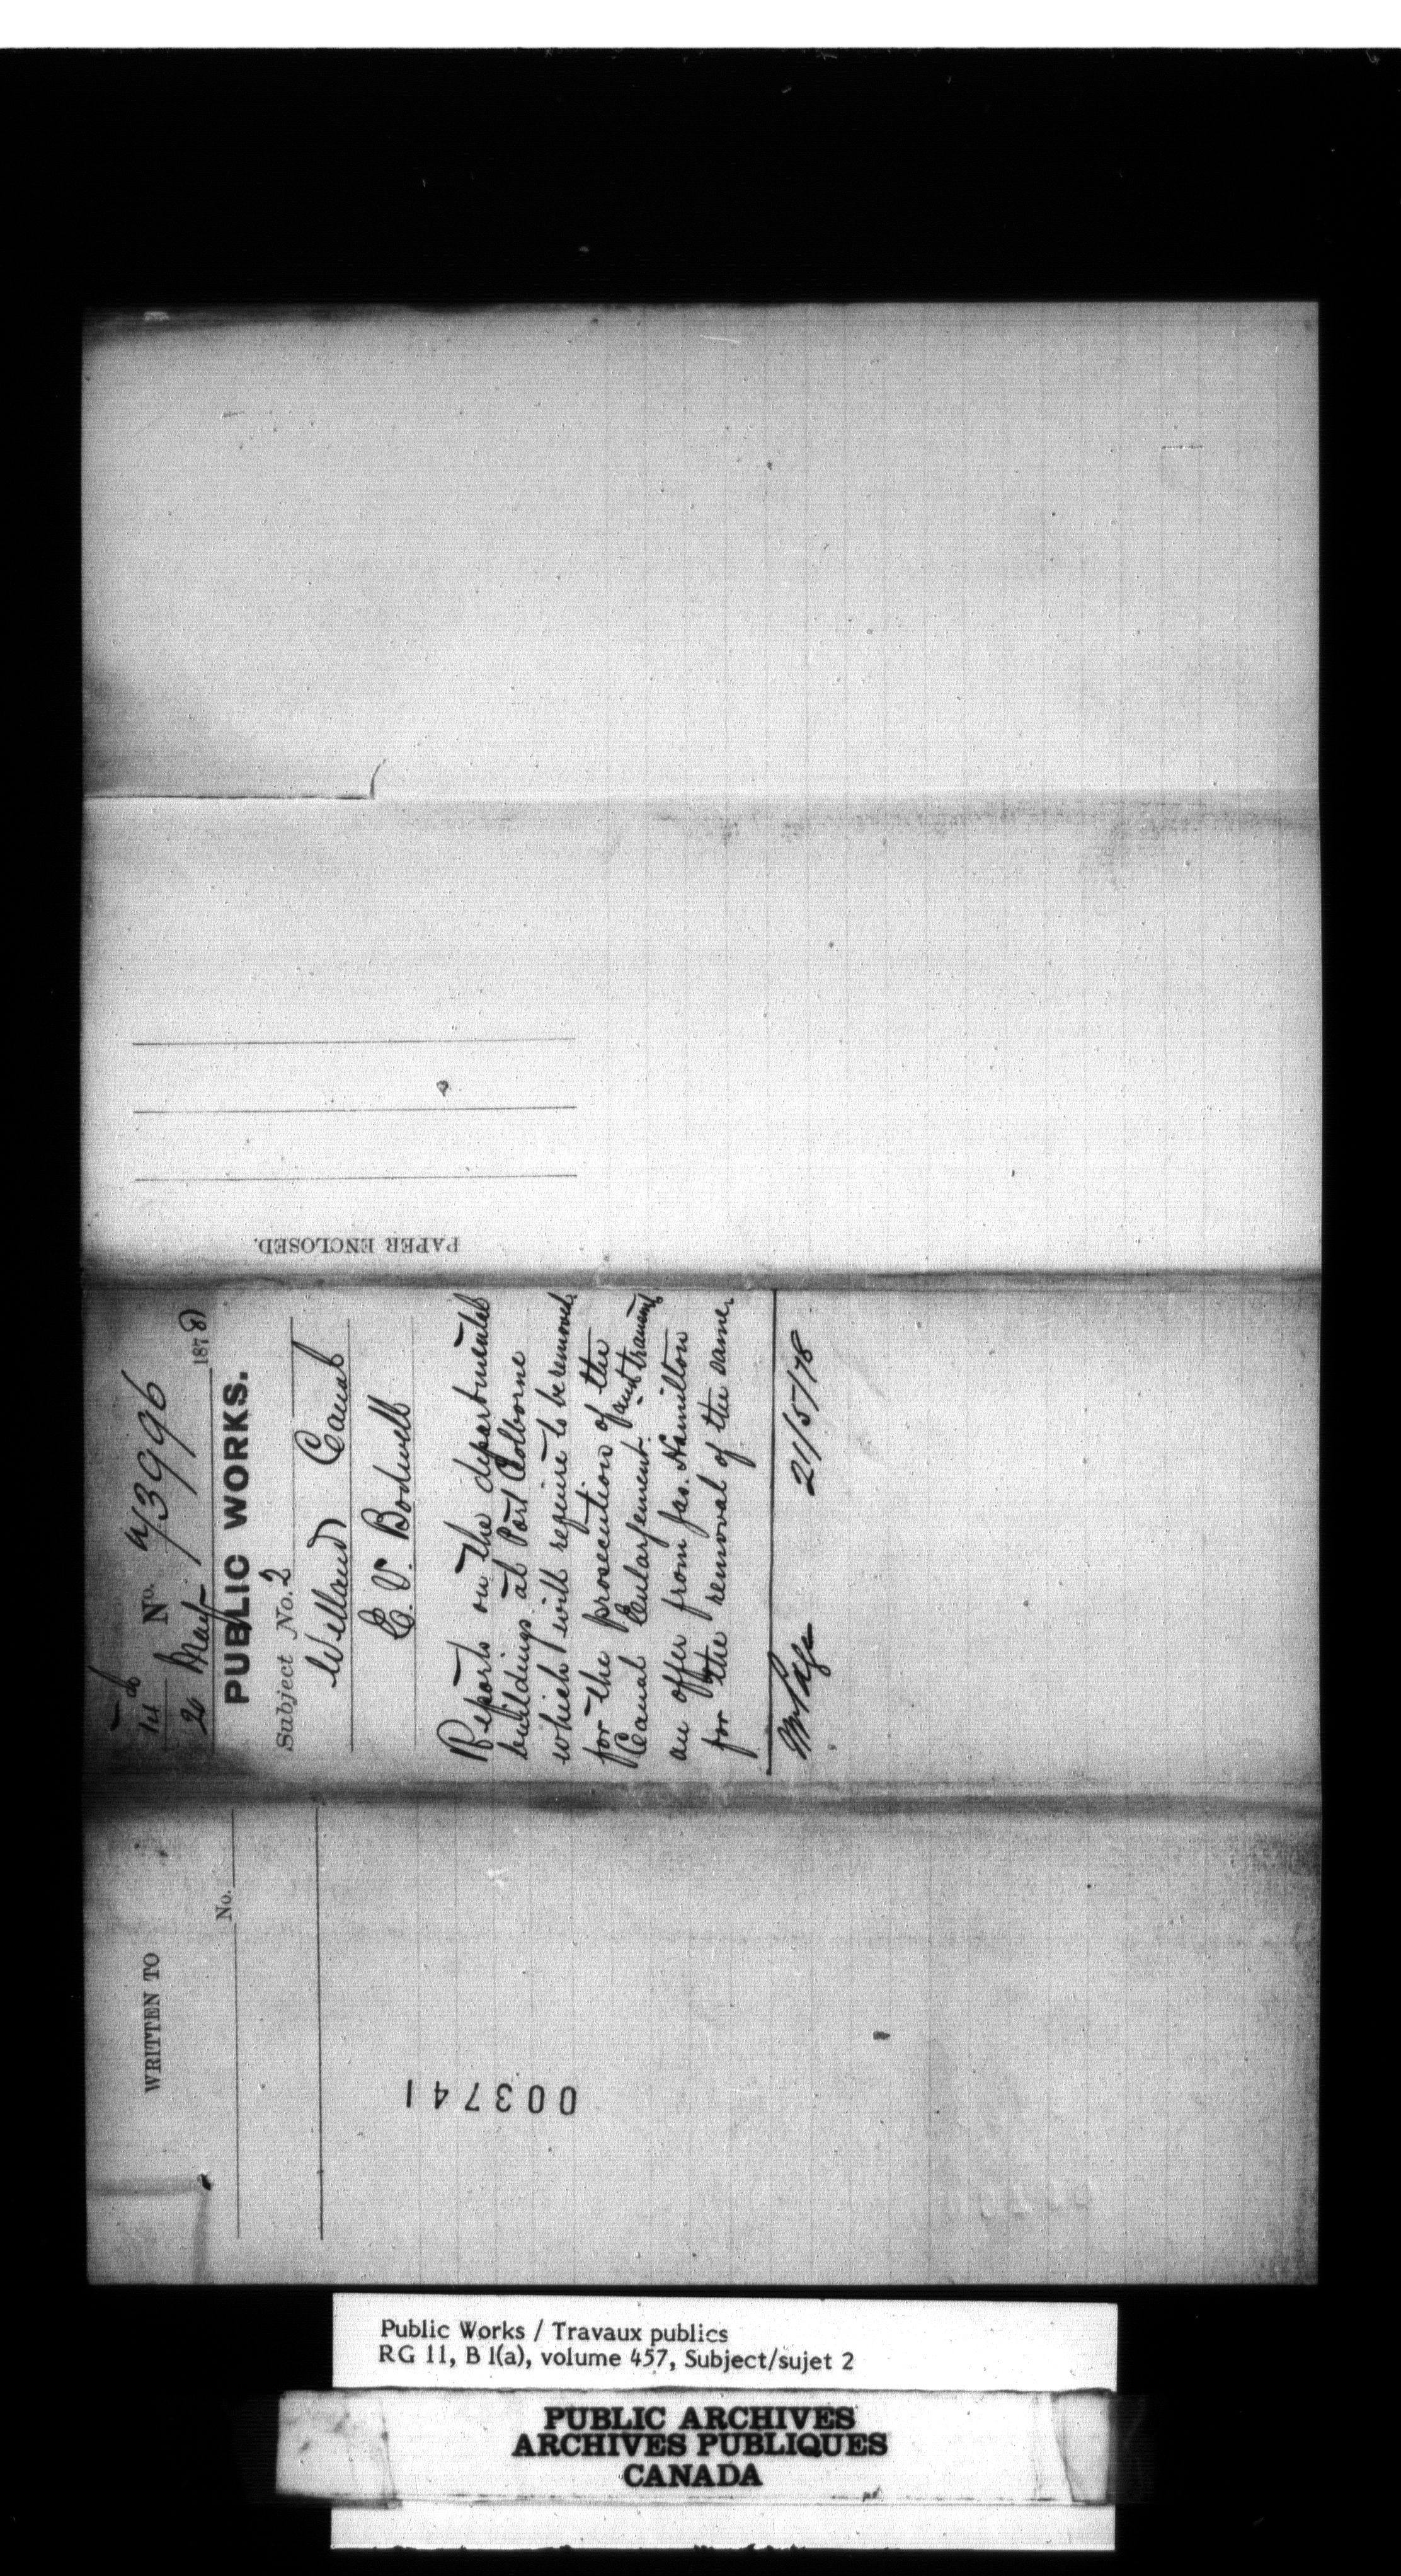 No. 73996
20 May 1878
PUBLIC WORKS.
Subject No. 2
Welland Canal
E. V. Bodwell
Reports on the departmental
buildings at Port Colborne
which will require to be removed
for the prosecution of the
Canal Enlargement and transmits
an offer from Jas. Hamilton
for the removal of the same
Mr Page 21/5/78
PAPER ENCLOSED.
WRITTEN TO
No.
003741
Public Works / Travaux publics
RG 11, B 1(a), volume 457, Subject/sujet 2
PUBLIC ARCHIVES
ARCHIVES PUBLIQUES
CANADA